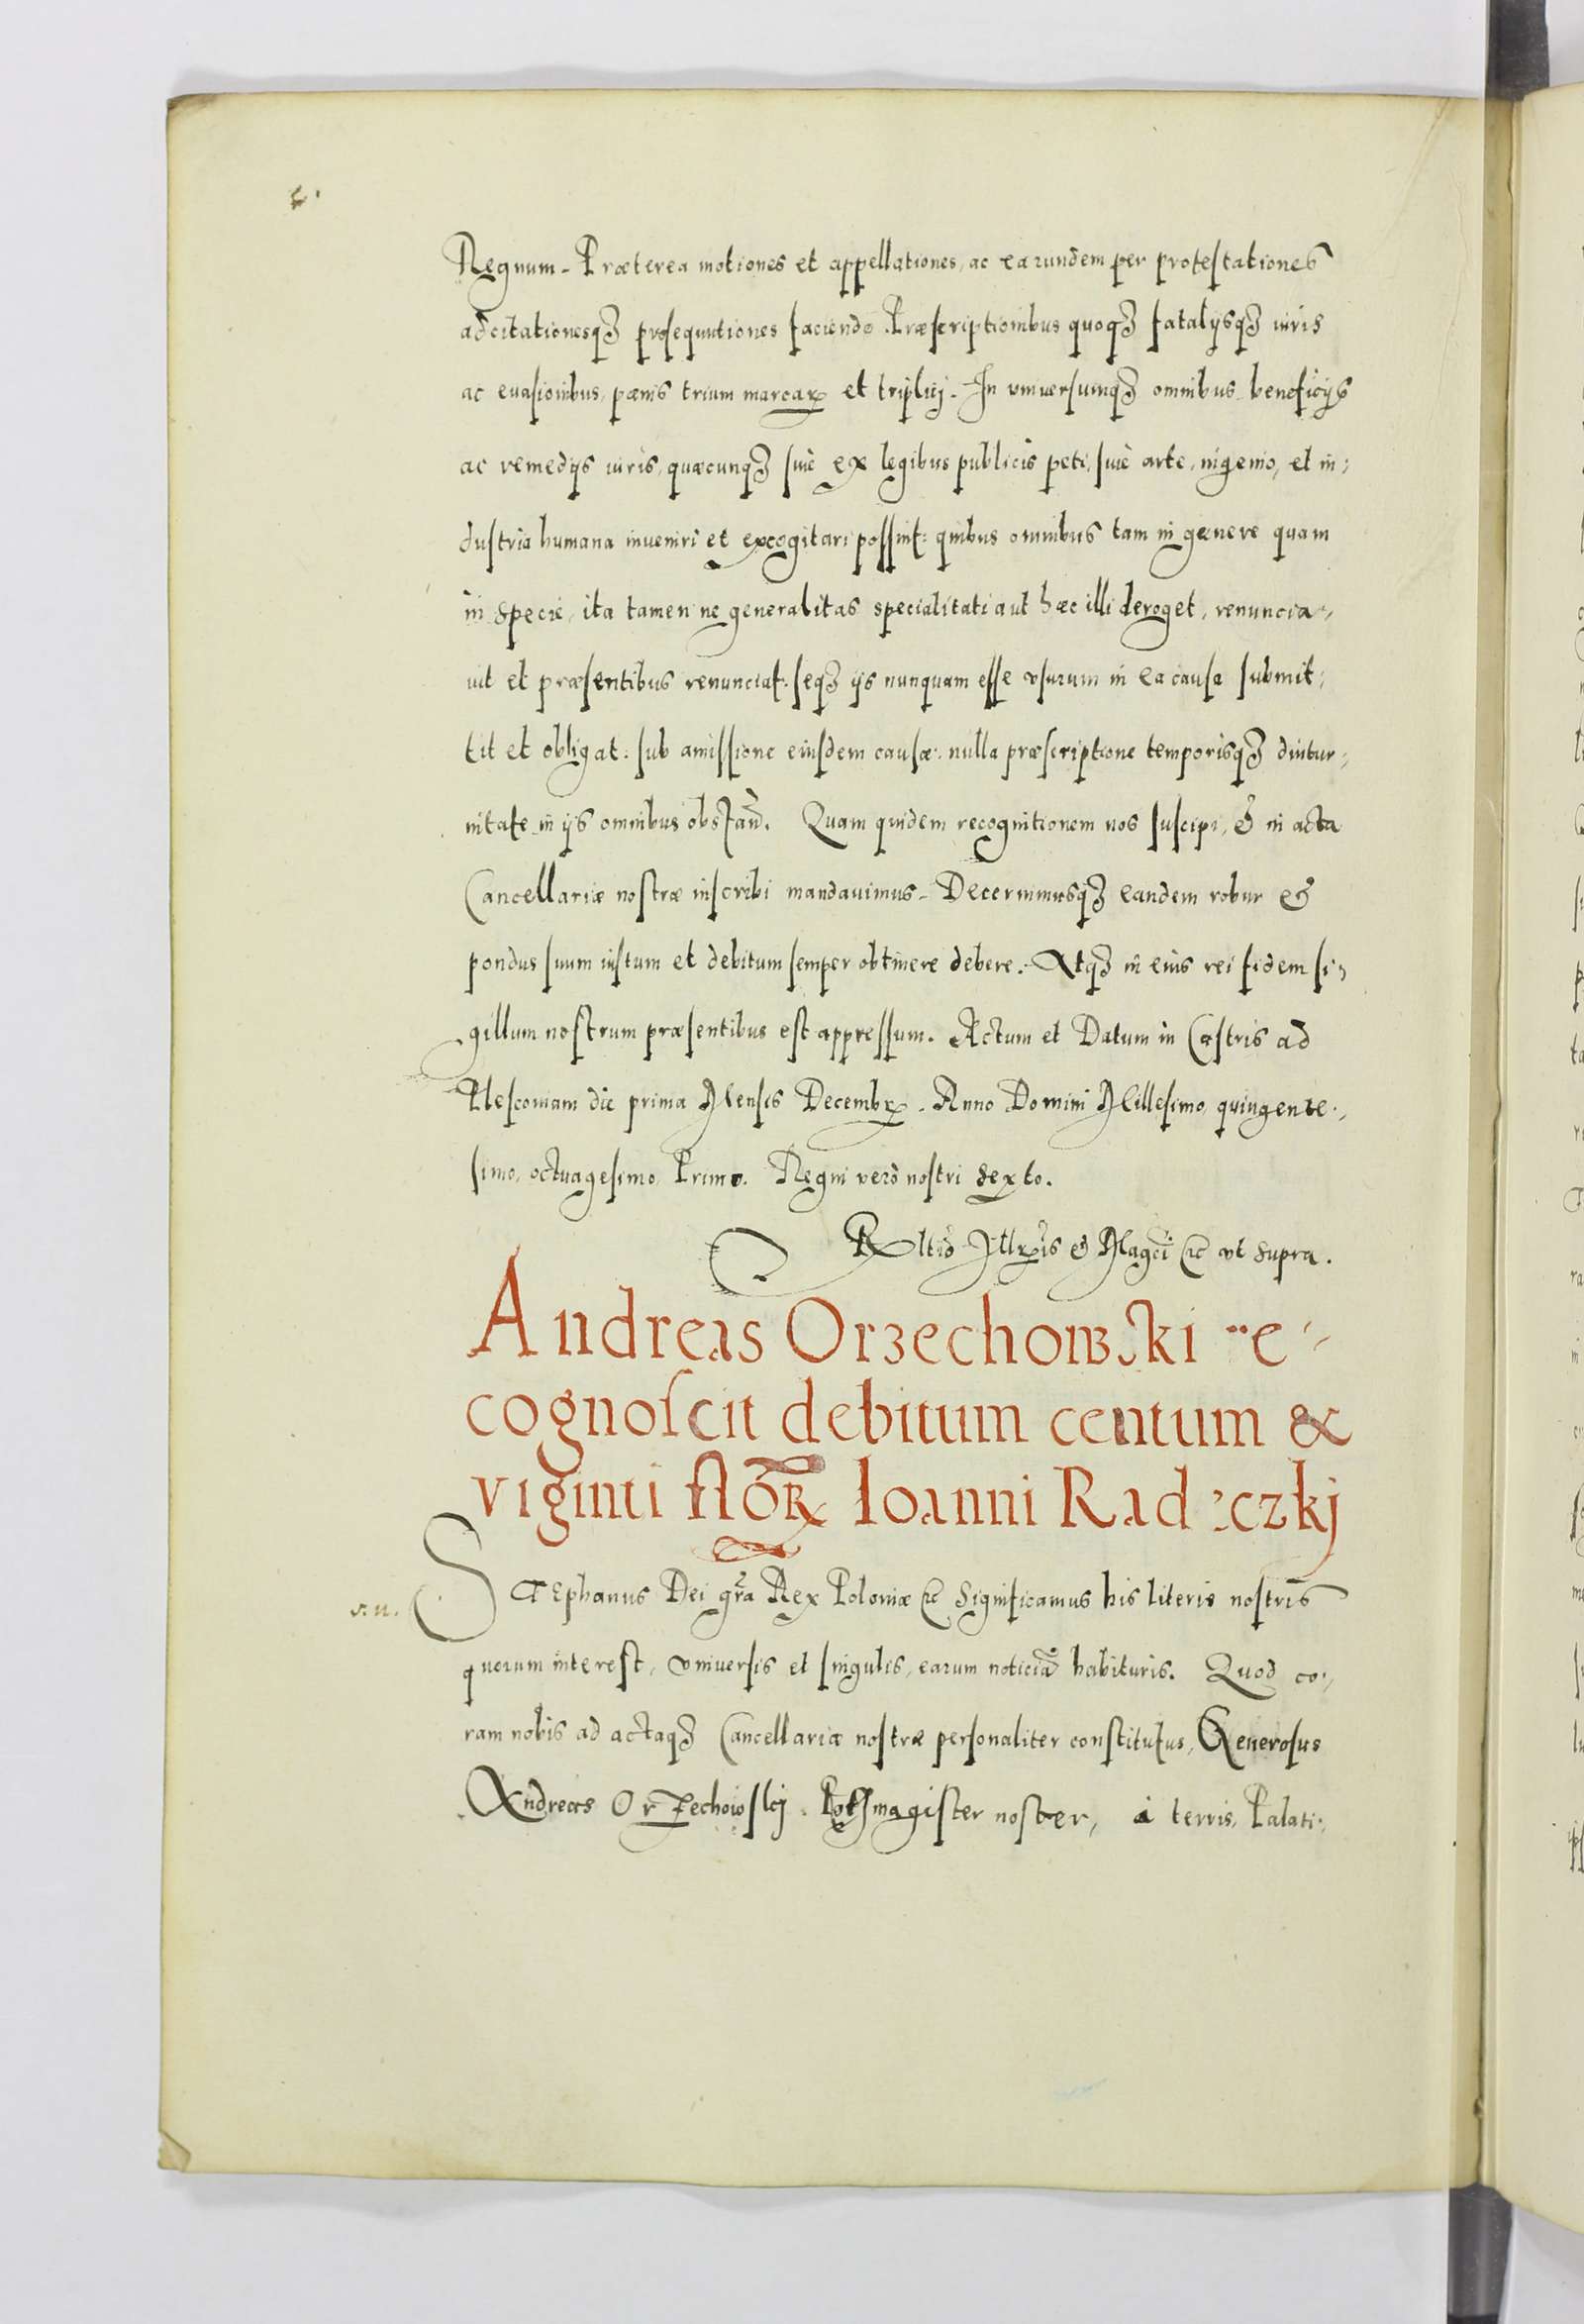 Regnum. Præterea motiones et appellationes, ac earundem per protestationes
adcitationesqꝫ prosequutiones faciendo. Præscriptionibus quoqꝫ fatalijsqꝫ iuris
ac euasionibus, pænis trium marcarꝝ et triplicj. In vniuersumqꝫ omnibus beneficijs
ac remedijs iuris, quæcunqꝫ siue ex legibus publicis peti, siue arte, ingenio, et in:
dustria humana inueniri et excogitari possint: quibus omnibus tam in genere quam
in specie, ita tamen ne generalitas specialitati aut hæc illi deroget, renuncia:
uit et præsentibus renunciat: seqꝫ ijs nunquam esse vsurum in ea causa submit:
tit et obligat: sub amissione eiusdem causæ: nulla præscriptione temporisqꝫ diutur:
nitate in ijs omnibus obstan̄. Quam quidem recognitionem nos suscipi, & in acta
Cancellariæ nostræ inscribi mandauimus. Decernimusqꝫ eandem robur &
pondus suum iustum et debitum semper obtinere debere. Atqꝫ in eius rei fidem si:
gillum nostrum præsentibus est appressum. Actum et Datum in Castris ad
Plescouiam die prima Mensis Decembrꝝ. Anno Domini Millesimo, quingente:
simo, octuagesimo, Primo. Regni vero nostri Sexto.
Rltio Illris & Magci &c vt supra.
Andreas Orzechowski re:
cognoscit debitum centum &
viginti florꝝ Ioanni Radeczkj
s. n.
STEphanus Dei gr̃a Rex Poloniæ &c Significamus his literis nostris
quorum interest, vniuersis et singulis, earum noticiã habituris. Quod co:
ram nobis ad actaqꝫ Cancellariæ nostræ personaliter constitutus, Generosus
Andreas Orzechowskj Rothmagister noster, à terris, Palati: